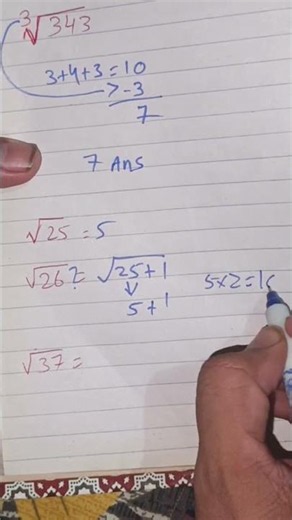 ³√343
3+4+3=10
>-3
7
7 Ans
√25 = 5
√26 ?= √25+1
5+1
5×2=10
√37 =